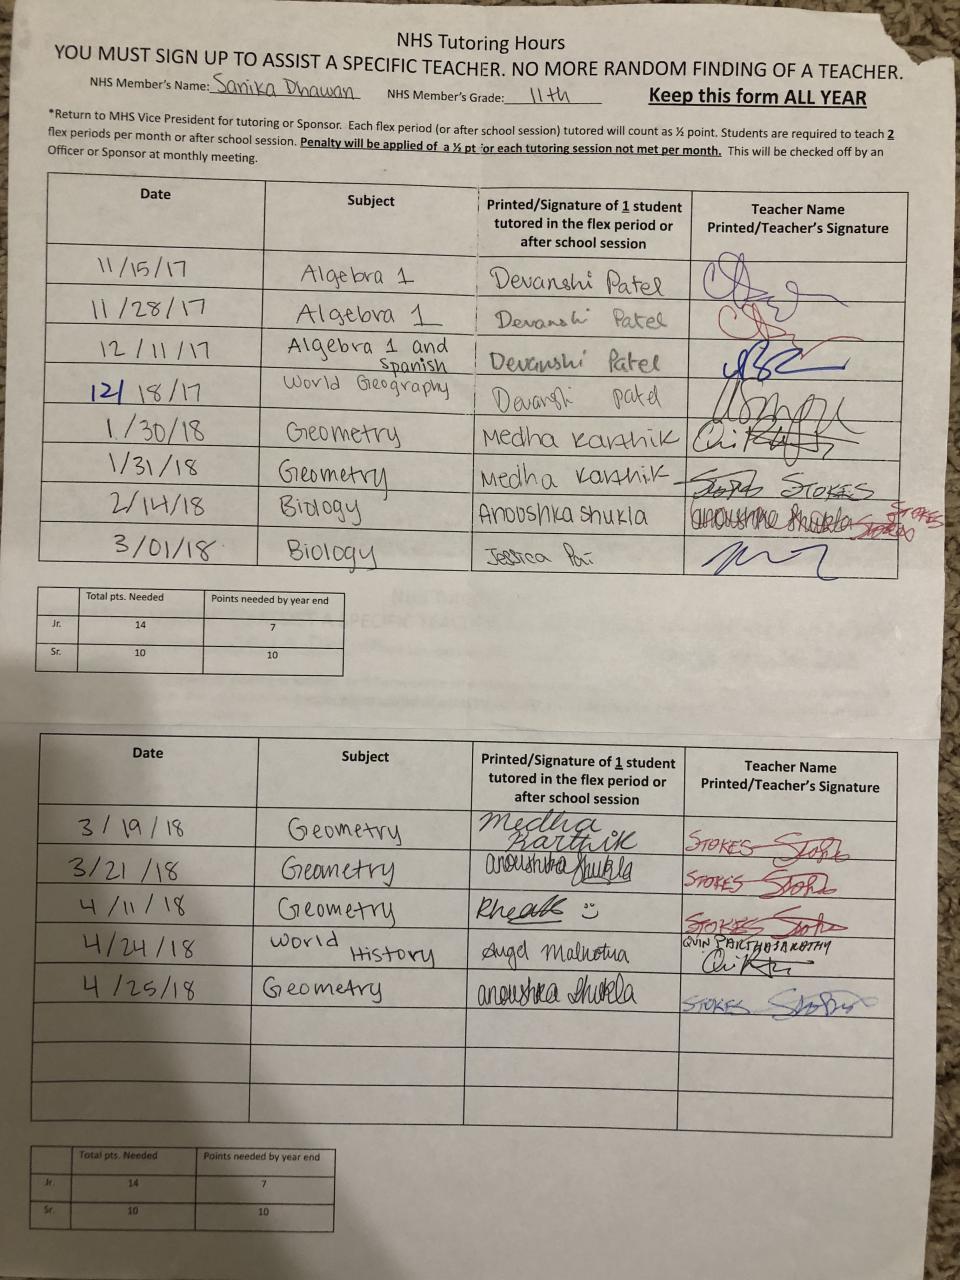 NHS Tutoring Hours
YOU MUST SIGN UP TO ASSIST A SPECIFIC TEACHER. NO MORE RANDOM FINDING OF A TEACHER.
NHS Member's Name: Sanika Dhawan NHS Member's Grade: 11th Keep this form ALL YEAR
*Return to MHS Vice President for tutoring or Sponsor. Each flex period (or after school session) tutored will count as ½ point. Students are required to teach 2
flex periods per month or after school session. Penalty will be applied of a ½ pt for each tutoring session not met per month. This will be checked off by an
Officer or Sponsor at monthly meeting.
Date Subject Printed/Signature of 1 student Teacher Name
tutored in the flex period or Printed/Teacher's Signature
after school session
11/15/17 Algebra 1 Devanshi Patel
11/28/17 Algebra 1 Devanshi Patel
12/11/17 Algebra 1 and Devanshi Patel
Spanish
12/18/17 World Geography Devanshi Patel
1/30/18 Geometry Medha Karthik
1/31/18 Geometry Medha Karthik Stokes STOKES
2/14/18 Biology Anooshka Shukla anoushka Shukla Stokes STOKES
3/01/18 Biology Jessica Pai
Total pts. Needed Points needed by year end
Jr. 14 7
Sr. 10 10
Date Subject Printed/Signature of 1 student Teacher Name
tutored in the flex period or Printed/Teacher's Signature
after school session
3/19/18 Geometry Medha
Karthik STOKES Stokes
3/21/18 Geometry anoushka Shukla STOKES Stokes
4/11/18 Geometry STOKES Stokes
4/24/18 World Angel Malhotra QUIN PARTHASARATHY
History
4/25/18 Geometry anoushka Shukla STOKES Stokes
Total pts. Needed Points needed by year end
Jr. 14 7
Sr. 10 10